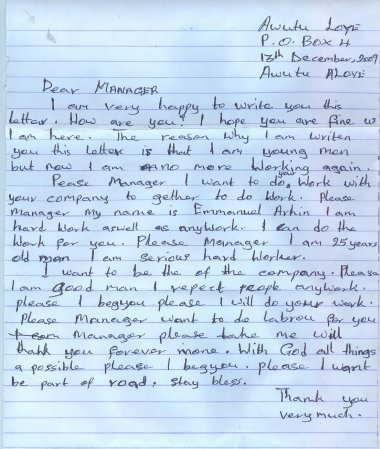 Awutu Loye
P.O. Box 4
13th December, 2009
Awutu ALOYE
Dear MANAGER
I am very happy to write you this
letter. How are you? I hope you are fine w
I am here. The reason why I am writen
you this letter is that I am young man
but now I am no more working again.
Pease Manager I want to do your work with
your company to gether to do work. Please
manager my name is Emmanuel Arhin I am
hard work aswell as anywork. I can do the
work for you. Please Manager I am 25 years
old man I am serious hard worker.
I want to be the of the company. Please
I am good man I repect peope anywork.
please I begyou please I will do your work.
Please Manager want to do labrou for you
Manager please take me will
thank you forever more. With God all things
a possible please I begyou. please I want
be part of road. stay bless.
Thank you
very much.